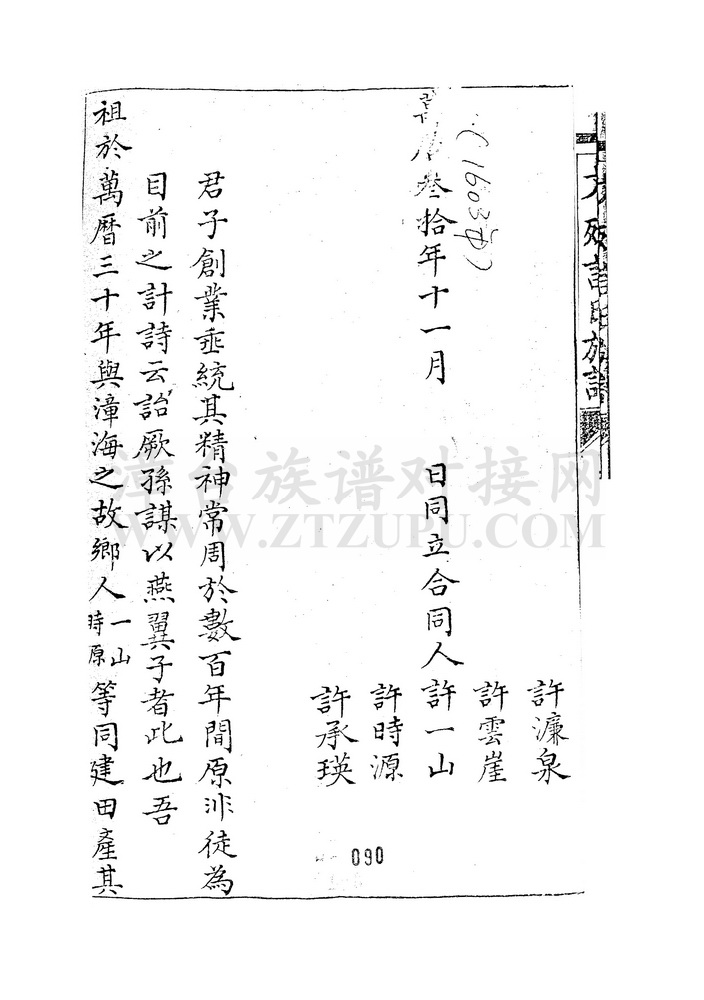 許氏族譜
(1603年)
叁拾年十一月 日同立合同人
許濂泉
許雲崖
許一山
許時源
許承瑛
君子創業垂統其精神常周於數百年間原非徒為
目前之計詩云詒厥孫謀以燕翼子者此也吾
祖於萬曆三十年與漳海之故鄉人一山時原等同建田產其
090
漳台族谱对接网
WWW.ZTZUPU.COM